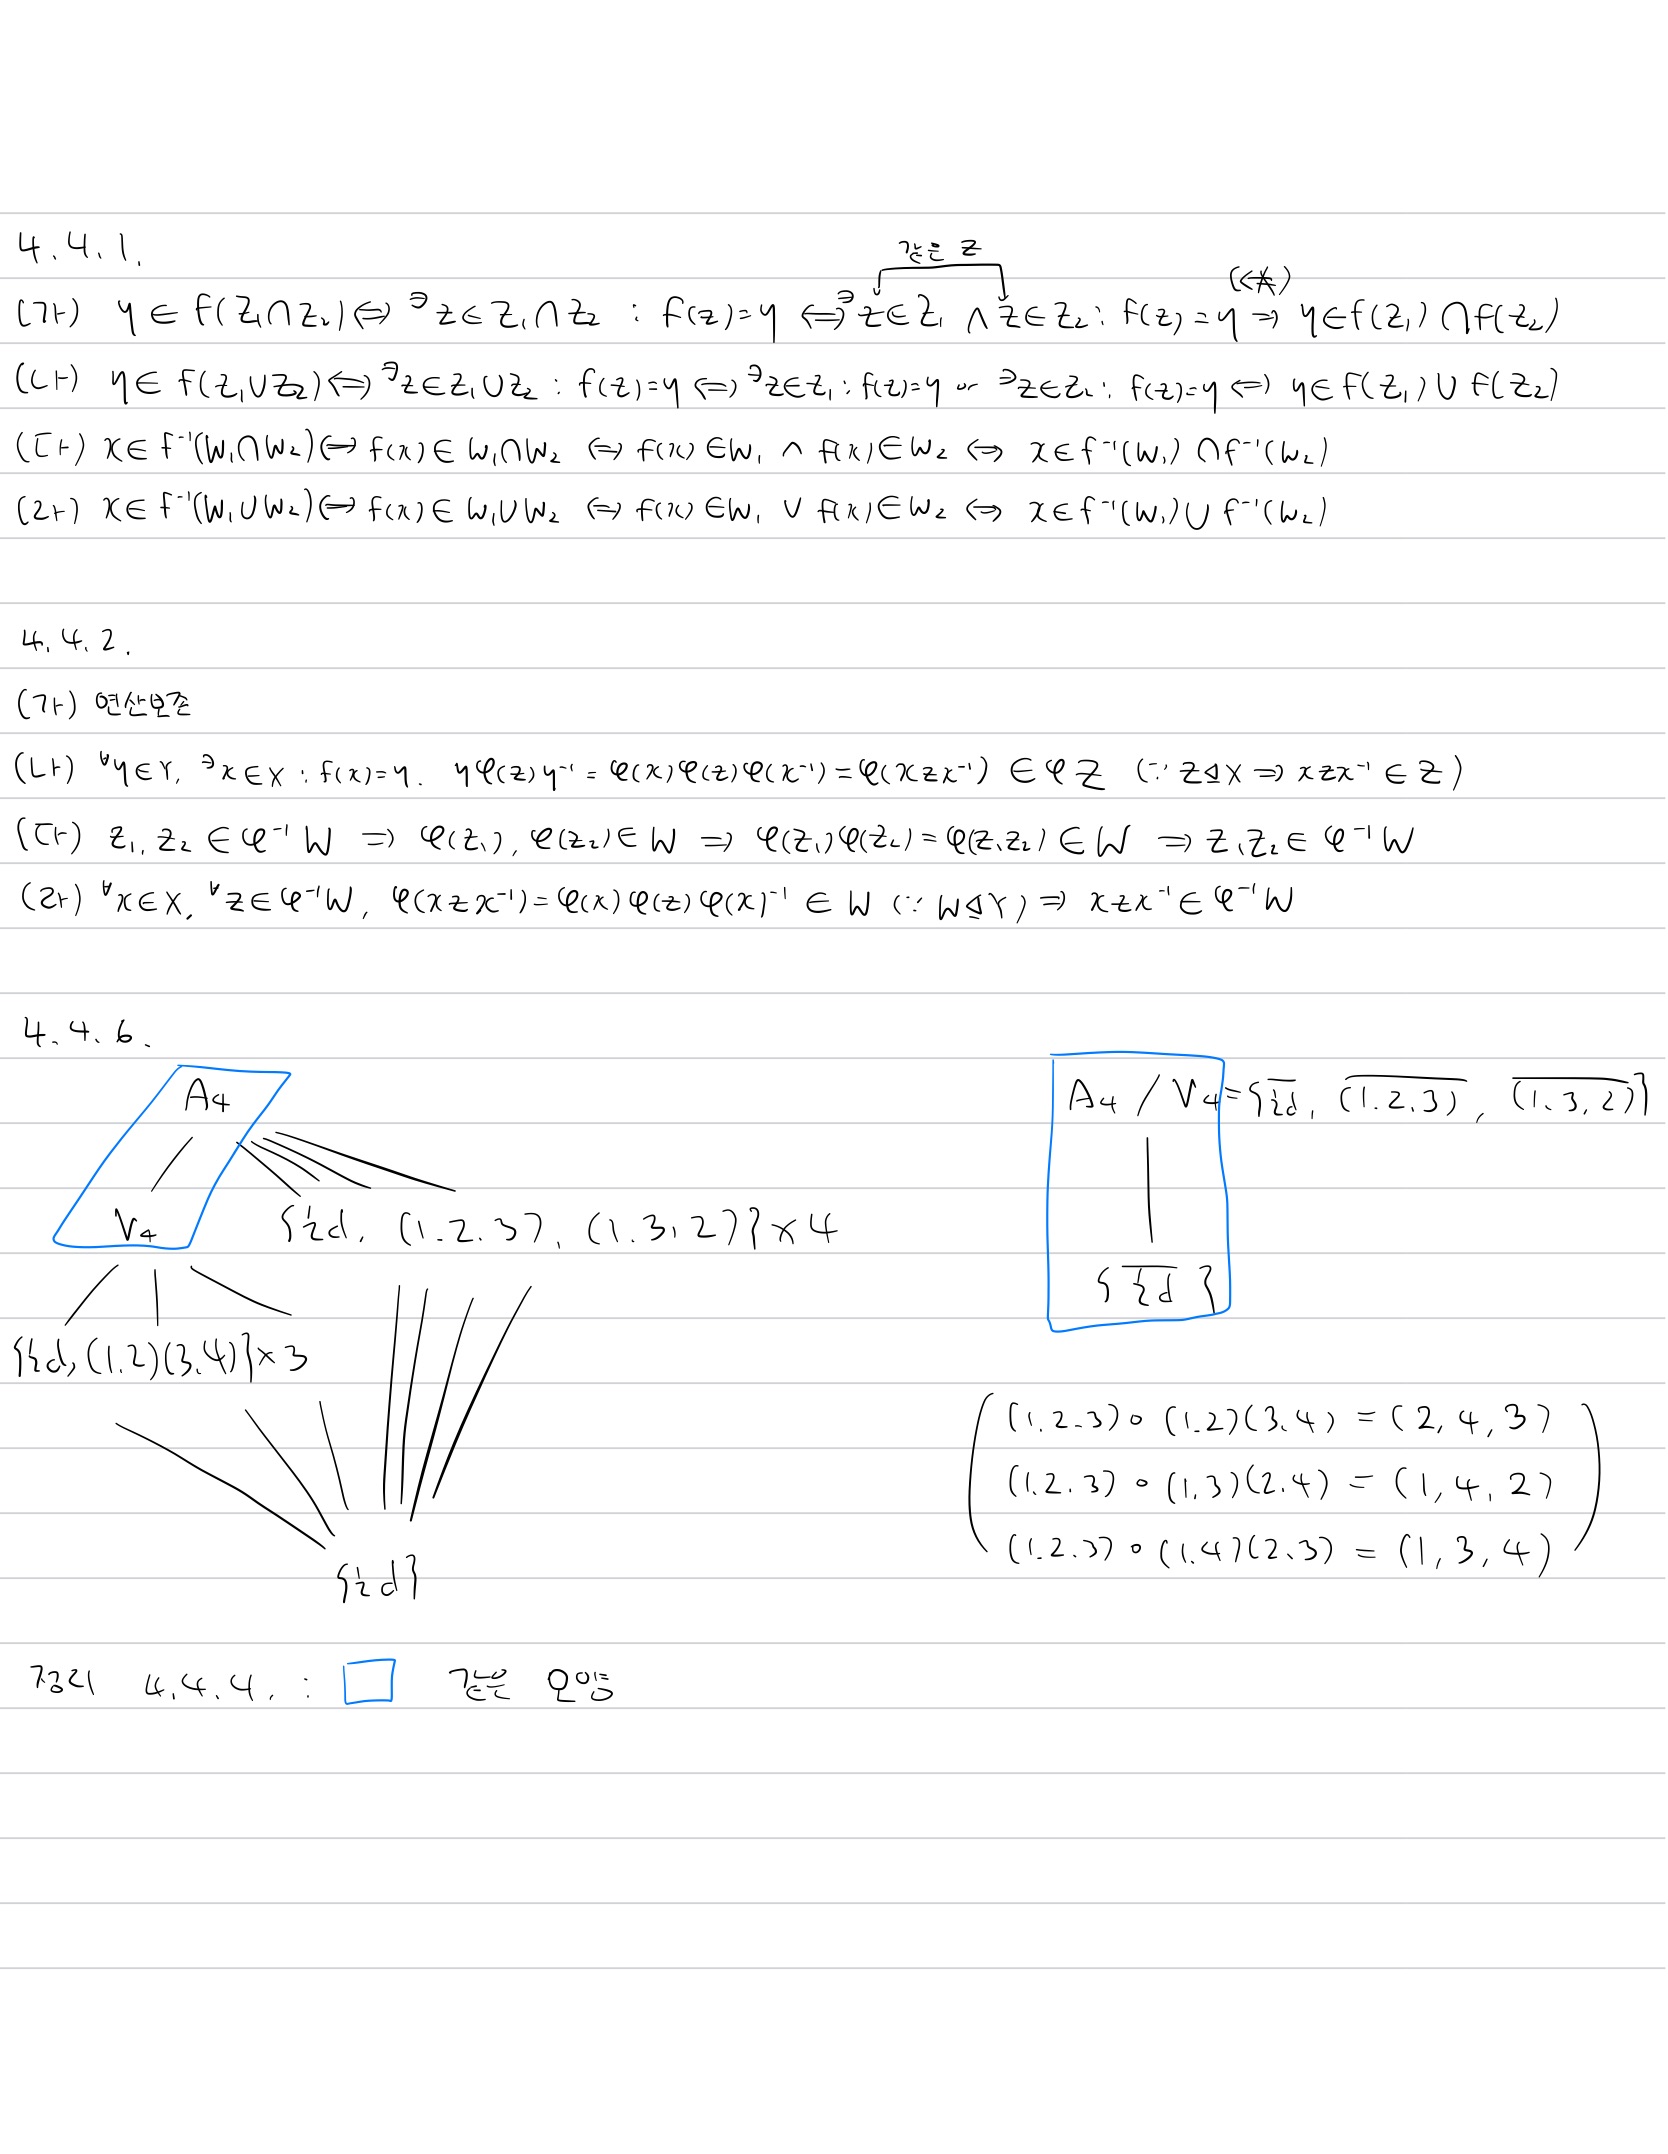 4.4.1.
같은 z
(가) y ∈ f(Z₁∩Z₂) ⇔ ∃z ∈ Z₁∩Z₂ : f(z)=y ⇔ ∃z∈Z₁ ∧ z∈Z₂ : f(z)=y ⇒ (⇍) y∈f(Z₁) ∩ f(Z₂)
(나) y ∈ f(Z₁∪Z₂) ⇔ ∃z∈Z₁∪Z₂ : f(z)=y ⇔ ∃z∈Z₁ : f(z)=y or ∃z∈Z₂ : f(z)=y ⇔ y∈f(Z₁) ∪ f(Z₂)
(다) x∈f⁻¹(W₁∩W₂) ⇔ f(x)∈W₁∩W₂ ⇔ f(x)∈W₁ ∧ f(x)∈W₂ ⇔ x∈f⁻¹(W₁) ∩ f⁻¹(W₂)
(라) x∈f⁻¹(W₁∪W₂) ⇔ f(x)∈W₁∪W₂ ⇔ f(x)∈W₁ ∨ f(x)∈W₂ ⇔ x∈f⁻¹(W₁) ∪ f⁻¹(W₂)
4.4.2.
(가) 연산보존
(나) ∀y∈Y, ∃x∈X : f(x)=y. yφ(z)y⁻¹ = φ(x)φ(z)φ(x⁻¹) = φ(xzx⁻¹) ∈ φZ (∵ Z⊴X ⇒ xzx⁻¹ ∈ Z)
(다) z₁, z₂ ∈ φ⁻¹W ⇒ φ(z₁), φ(z₂) ∈ W ⇒ φ(z₁)φ(z₂) = φ(z₁z₂) ∈ W ⇒ z₁z₂ ∈ φ⁻¹W
(라) ∀x∈X, ∀z∈φ⁻¹W, φ(xzx⁻¹) = φ(x)φ(z)φ(x)⁻¹ ∈ W (∵ W⊴Y) ⇒ xzx⁻¹ ∈ φ⁻¹W
4.4.6.
A₄
V₄ {id, (1.2.3), (1.3.2)}×4
{id, (1.2)(3.4)}×3
{id}
A₄ / V₄ = {i̅d̅, (̅1̅.̅2̅.̅3̅)̅, (̅1̅.̅3̅,̅2̅)̅}
{i̅d̅}
(1.2.3)∘(1.2)(3.4) = (2,4,3)
(1.2.3)∘(1.3)(2.4) = (1,4,2)
(1.2.3)∘(1.4)(2.3) = (1,3,4)
정리 4.4.4. : □ 같은 모양